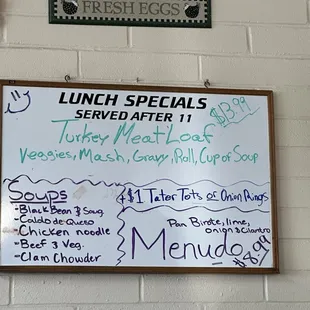 FRESH EGGS
LUNCH SPECIALS
SERVED AFTER 11
$13.99
Turkey Meat Loaf
Veggies, Mash, Gravy, Roll, Cup of Soup
Soups
-Black Bean & Saug
-Caldo de Queso
-Chicken noodle
-Beef & Veg.
-Clam Chowder
+$1 Tater Tots or Onion Rings
Pan Birote, lime,
onion & Cilantro
Menudo
$8.99